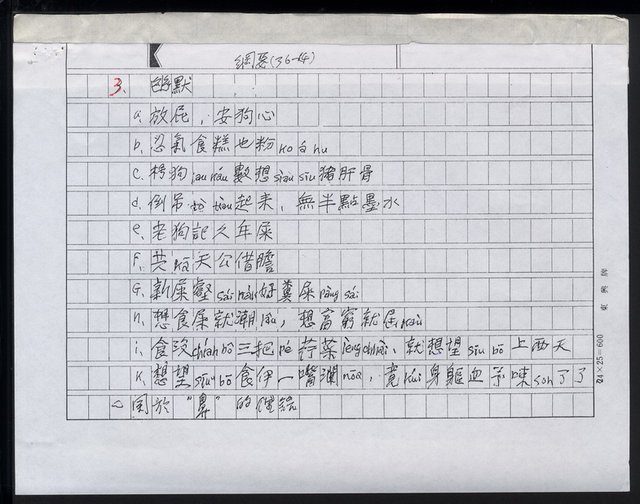 綱要(36-14)
3. 幽默
a. 放屁，安狗心
b. 忍氣食糕也粉 ko á hu
c. 狗 káu 數想 siàu siū 豬肝骨
d. 倒吊 tò tiàu 起來，無半點墨水
e. 老狗記久年屎
F. 共 kā 天公借膽
G. 新屎礐 sái ha̍k 好糞屎 pàng sái
h. 想食屎就潮 lâu，想富窮就
i. 食沒 chia̍h bô 三把 pé 蕹菜 èng chhài，就想望 siū bō 上西天
k. 想望 siūⁿ bō 食伊一嘴瀾 nōa，竟 身軀血予 sńg 了了
關於"鼻"的俚諺
24×25=600